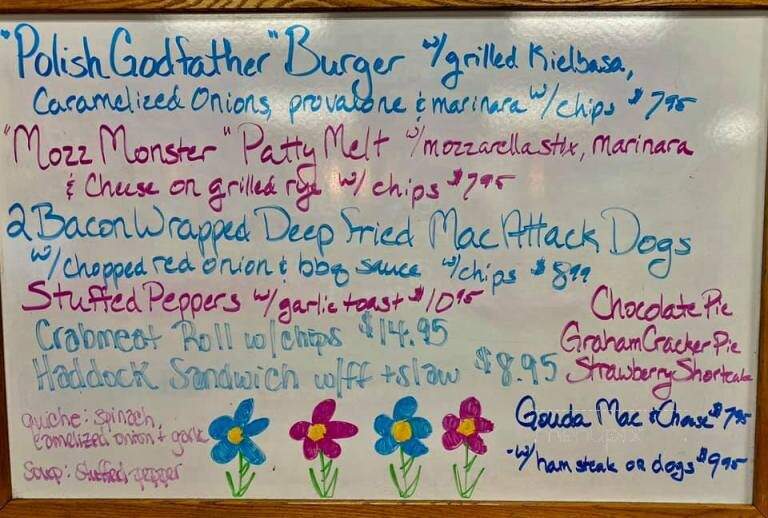 "Polish Godfather" Burger w/grilled Kielbasa,
Caramelized Onions, provalone & marinara w/chips $7.95
"Mozz Monster" Patty Melt w/mozzarella stix, marinara
& Cheese on grilled rye w/ chips $7.95
2 Bacon Wrapped Deep Fried Mac Attack Dogs
w/chopped red onion & bbq sauce w/chips $8.99
Stuffed Peppers w/garlic toast $10.95
Crabmeat Roll w/chips $14.95
Haddock Sandwich w/ff + slaw $8.95
Chocolate Pie
Graham Cracker Pie
Strawberry Shortcake
quiche: spinach,
camelized onion + garlic
Soup: Stuffed pepper
Gouda Mac & Cheese $7.95
-w/ham steak or dogs $9.95